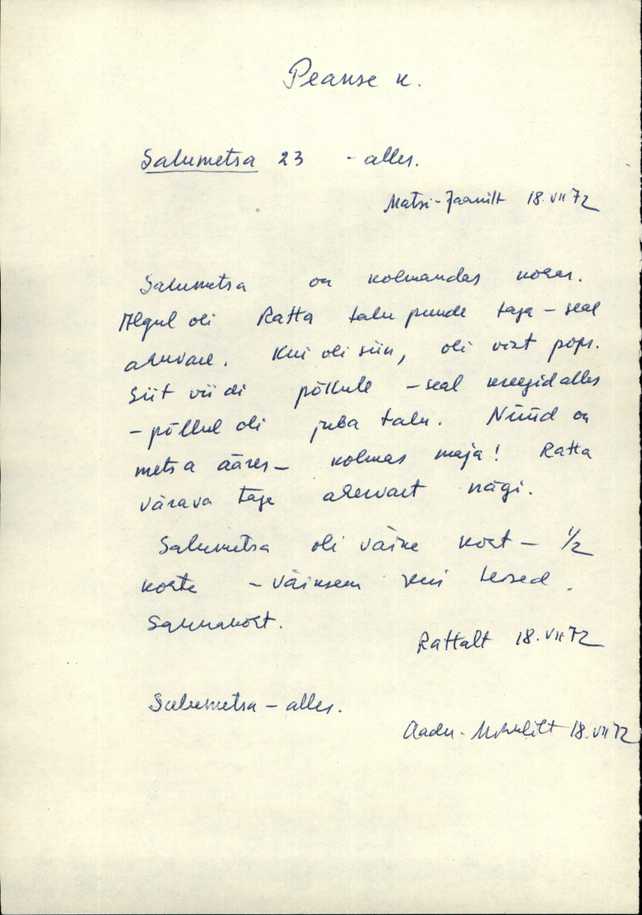 Peanse k.
Salumetsa 23 - alles.
Matsi-Jaanilt 18.VII 72
Salumetsa on kolmandas kohas.
Algul oli Ratta talu puude taga – seal
ahervare. Kui oli siin, oli vist pops.
Siit viidi põllule – seal keegid alles
– põllul oli juba talu. Nüüd on
metsa ääres – kolmas maja! Ratta
värava taga ahervart nägi.
Salumetsa oli väike koht – 1/2
kohta – väiksem kui teised.
Saunakoht.
Rattalt 18.VII 72
Salumetsa – alles.
Aadu- 18.VII 72